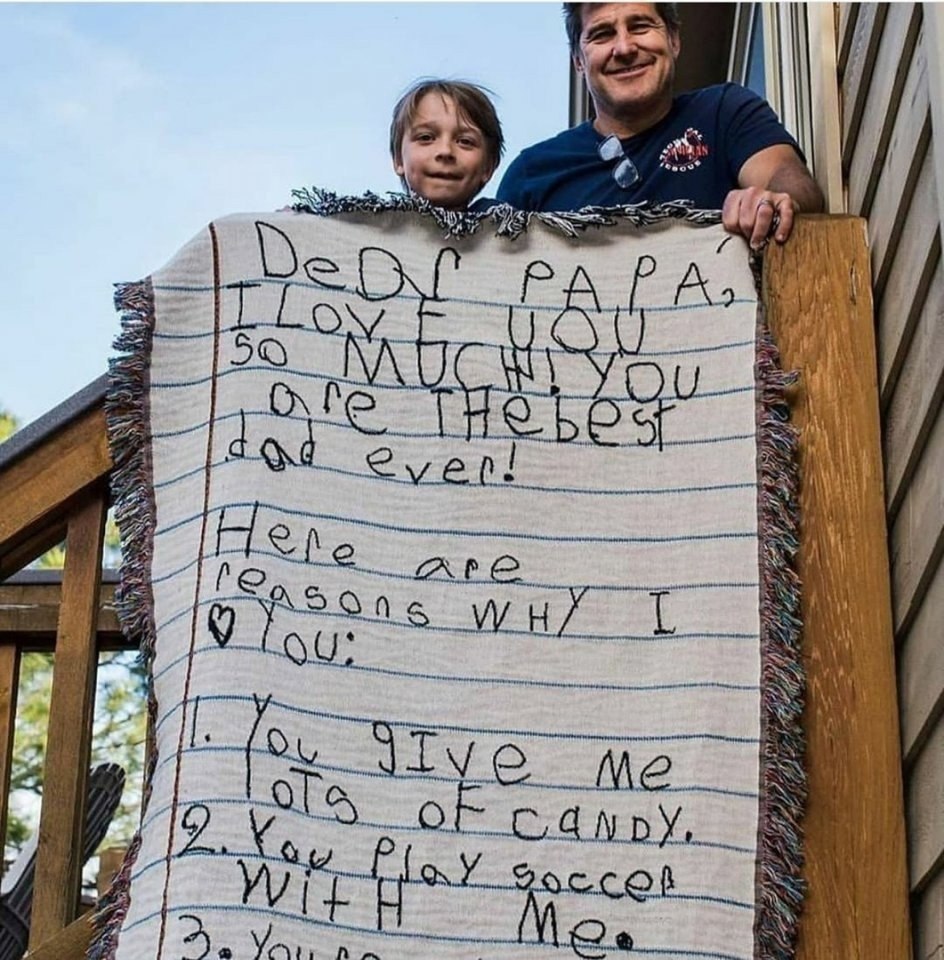 DeAr PAPA,
I LOVE YOU
SO MUCH! YOU
are THe best
dad ever!
Here are
reasons WHY I
♥ You:
1. You gIve Me
lOTS OF CANDY.
2. You Play soccer
WitH Me.
3. You
RESCUE